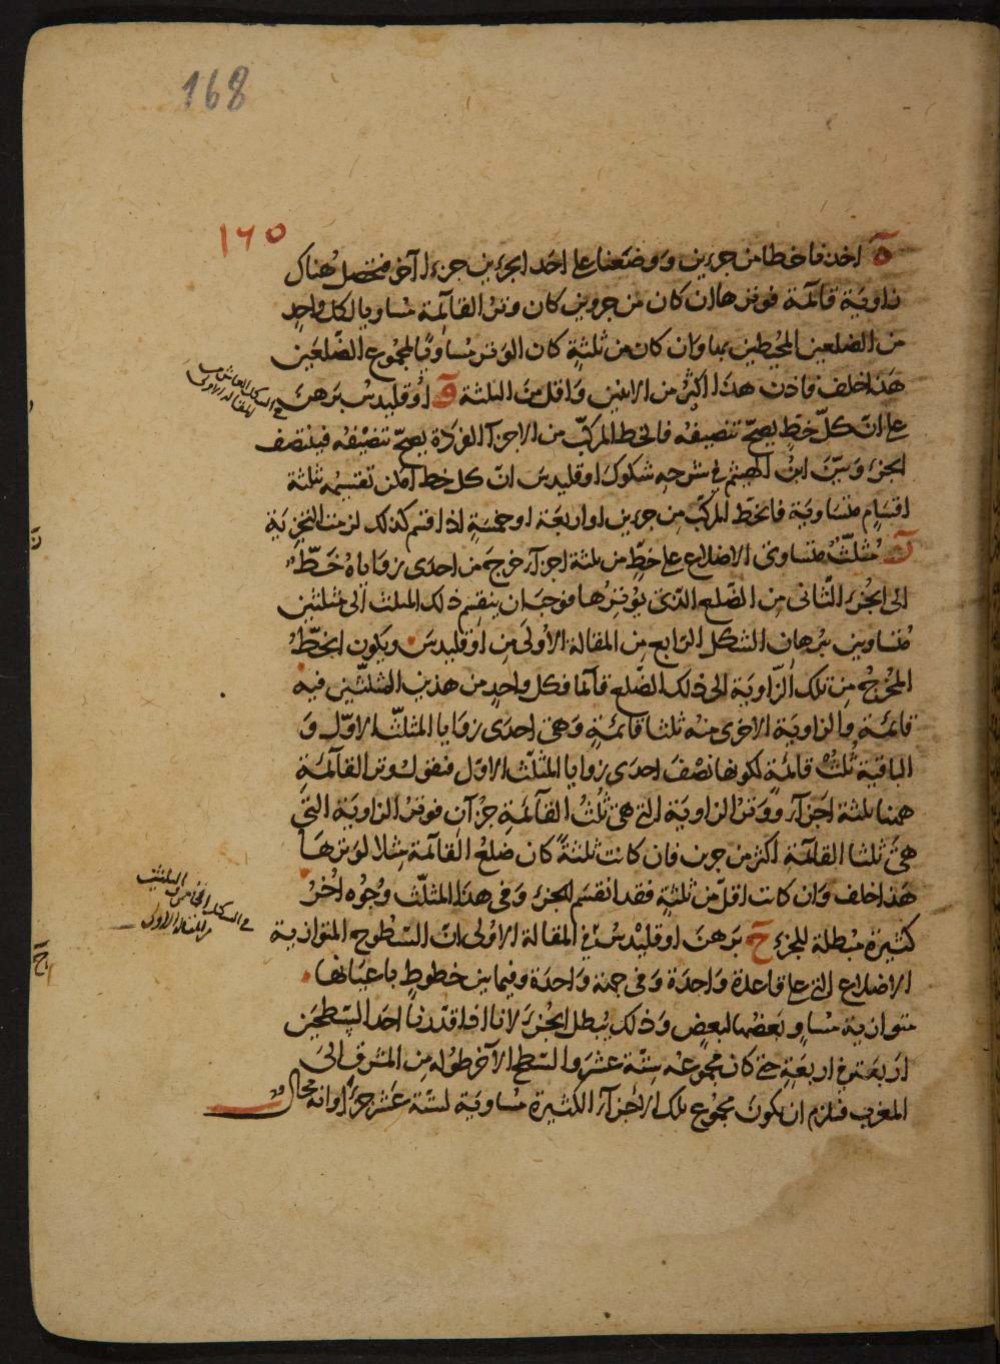 168
١٦٥
ه اخذنا خطا من جزءين ووضعنا على احد الجزءين جزءا آخر فتحصل هناك
زاوية قائمة فوترها ان كان من جزوين كان وتر القآئمة مساويا لكل واحد
من الضلعين المحيطين بها وان كان من ثلثة كان الوتر مساويًا لمجموع الضلعَين
هذا خلف فاذن هذا اكثر من الاثنين وَاقل من الثلثة وَ اوقليدس بَرهَنَ
على انّ كلّ خطٍ يصحّ تنصيفه فالخط المركّب من الاجزآ الفردة يصحّ تنصيفه فينتصف
الجزء وَبيّنَ ابنُ الهيثم في شرحِهِ شكوكَ اوقليدس انّ كل خط امكن تقسيمه ثلثة
اقسَامٍ متساويَة فالخط المركّب مِن جزءين او اربعَة او خمسَةٍ اذا قسم كذلك لزمت التجزية
زَ مُثلّثٌ متساوي الاضلاع على خطٍّ من ثلثة اجزآء خرجَ من احدَى زوَاياهُ خَطٌّ
الى الجُزء الثّانى مِن الضّلع الّذى يُوترها فوجبَ ان ينقسِم ذلك المثلث الى مثلثين
مُتساويين ببُرهان الشكل الرّابع مِن المقالة الأولى مِن اوقليدسَ ويكون الخطّ
المخرج مِن تلك الزّاويَة الى ذلك الضّلع قآئما فكل واحدٍ من هذين المثلثين فيه
قائمَة والزاويَة الاخرى منه ثلثا قائمةٍ وَهى احدَى زوَايا المثلّث الاوّل وَ
الباقية ثُلثُ قائمَةٍ لكونها نصْفَ احدَى زوايا المثلّث الاوّل فنقول وتر القآئمَةِ
ههنا ثلثة اجزآء ووَتر الزاويَة التي هى ثُلثُ القآئمةِ جزْآن فوترُ الزاويَة التي
هيَ ثلثا القائمَةِ اكثر من جزءين فان كانت ثلثةً كان ضلعُ القآئمة مِثلا لوَترهَا
هَذا خلف وَان كانت اقلّ من ثلثةٍ فقد انقسَم الجزء وَفى هذا المثلّث وجُوه اُخرُ
كثيرة مُبطلة للجزء حَ بَرهنَ اوقليْدسُ في المقالة الاوْلى انّ السّطُوح المتوازية
الاضلاع التي على قاعدة وَاحدَة وَفى جهة وَاحدَة وفيما بين خطوطٍ باعيانها
متوازية مُسَاوٍ بَعضُها لبَعضٍ وَذلك يُبطل الجُزء لانا اذا قدّرنا احدَ السّطحَين
اربعَة في اربعَةٍ حتى كان مجموعُه ستّة عشرَ والسّطح الآخر طوله مِن المشرق الى
المغرب فيلزم ان يكونَ مجمُوع تلك الاجزآء الكثيرة مُساويَة لستّة عشر جزءًا وانه محال
في الشكل العاشر من
المقالة الاولى
في الشكل الخامس والثلثين
من المقالة الاولى